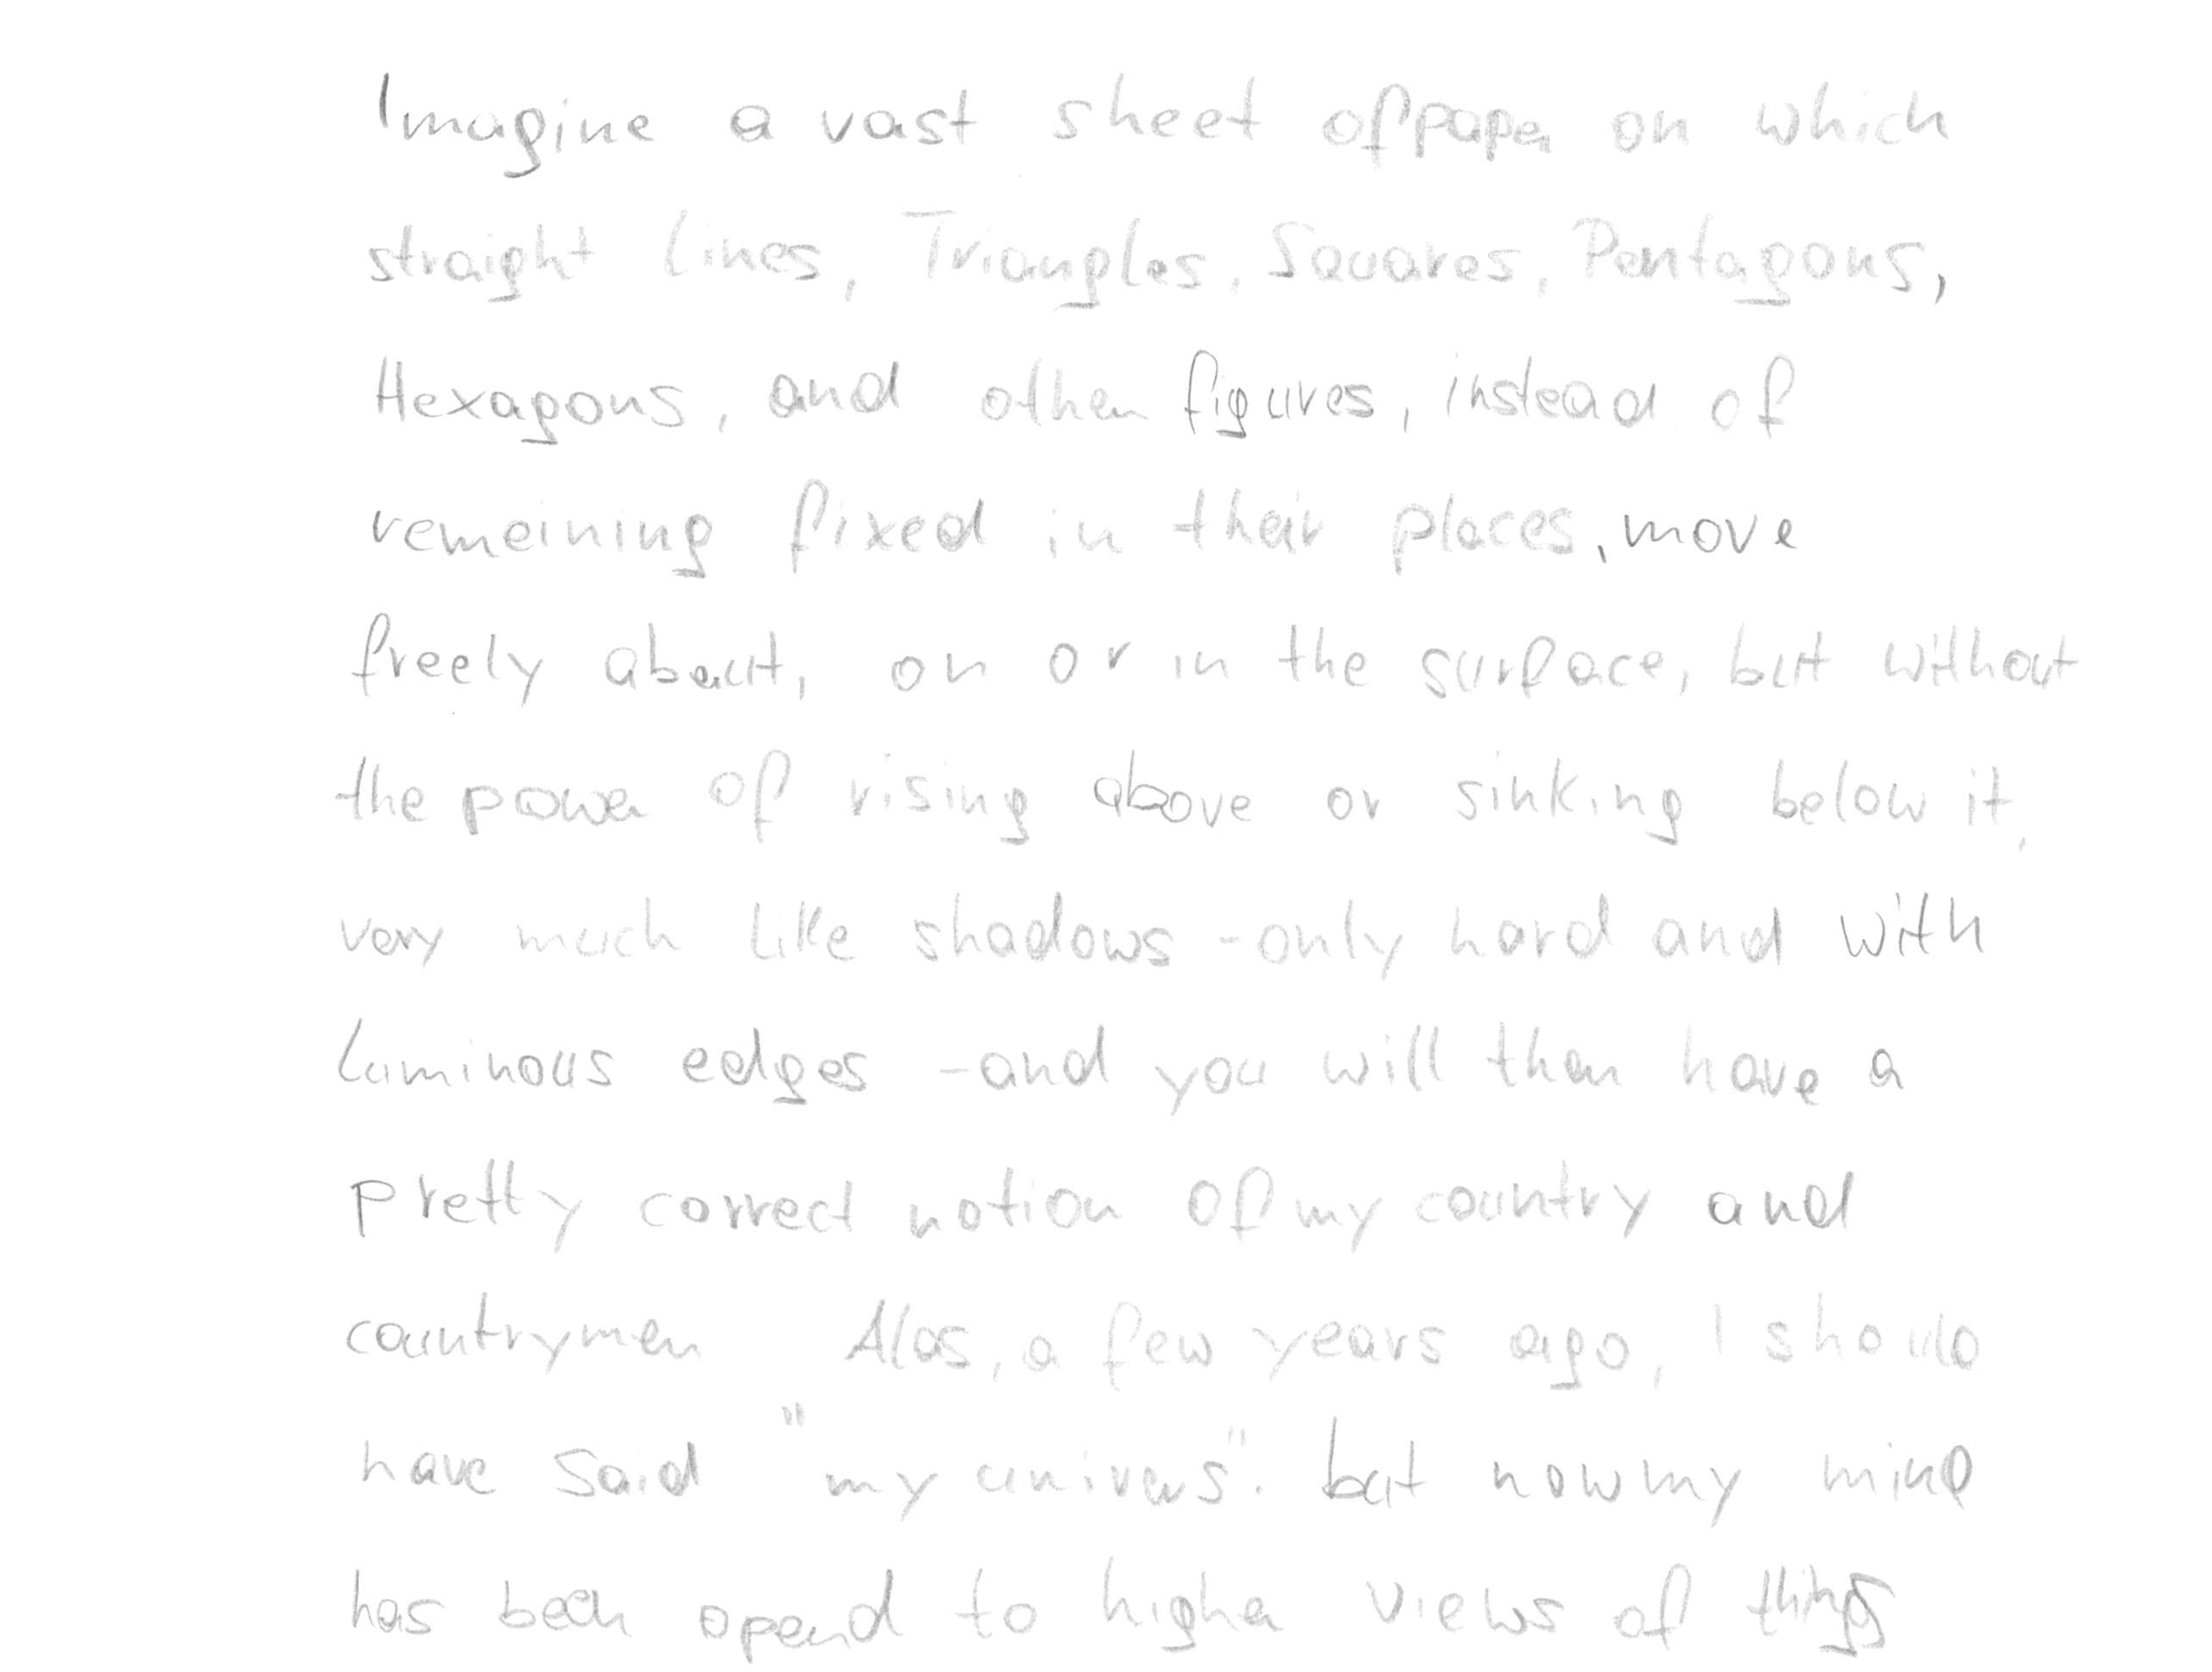 Imagine a vast sheet of paper on which
straight lines, Triangles, Squares, Pentagons,
Hexagons, and other figures, instead of
remeining fixed in their places, move
freely about, on or in the surface, but without
the power of rising above or sinking below it,
very much like shadows - only hard and with
luminous edges - and you will then have a
pretty correct notion of my country and
countrymen Alas, a few years ago, I should
have said "my univers". but now my mind
has been opend to higher views of things